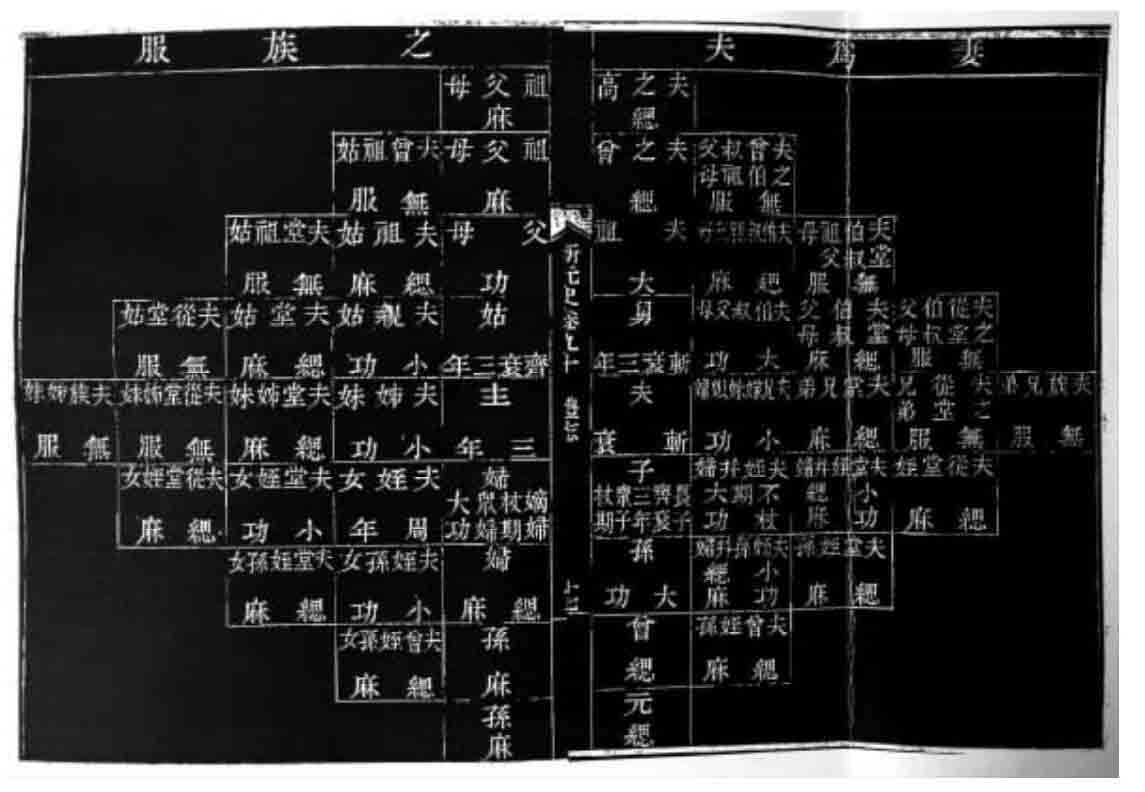 妻爲夫之族服
夫之高祖父母
緦麻
夫曾叔父
之伯祖母
無服
夫之曾祖父母
緦麻
夫曾祖姑
無服
夫伯祖母
堂叔父
無服
緦麻
夫祖父母
大功
夫祖姑
緦麻
夫堂祖姑
無服
夫從伯父
之堂叔母
無服
夫伯父
堂叔母
緦麻
夫伯叔父母
大功
舅
斬衰三年
姑
齊衰三年
夫親姑
小功
夫堂姑
緦麻
夫從堂姑
無服
夫族兄弟
無服
夫從兄
之堂弟
無服
夫堂兄弟
緦麻
小功
夫
斬衰
主
三年
夫姊妹
小功
夫堂姊妹
緦麻
夫從堂姊妹
無服
夫族姊妹
無服
夫從堂姪
緦麻
夫堂姪并婦
小功
緦麻
夫姪并婦
不杖期
大功
子
長子齊衰三年
衆子杖期
婦
嫡婦杖期
衆婦大功
夫姪女
周年
夫堂姪女
小功
夫從堂姪女
緦麻
夫堂姪孫
緦麻
夫姪孫并婦
小功
緦麻
孫
大功
婦
緦麻
夫姪孫女
小功
夫堂姪孫女
緦麻
夫曾姪孫
緦麻
曾孫
緦麻
夫曾姪孫女
緦麻
元孫
緦麻
新元史卷九十